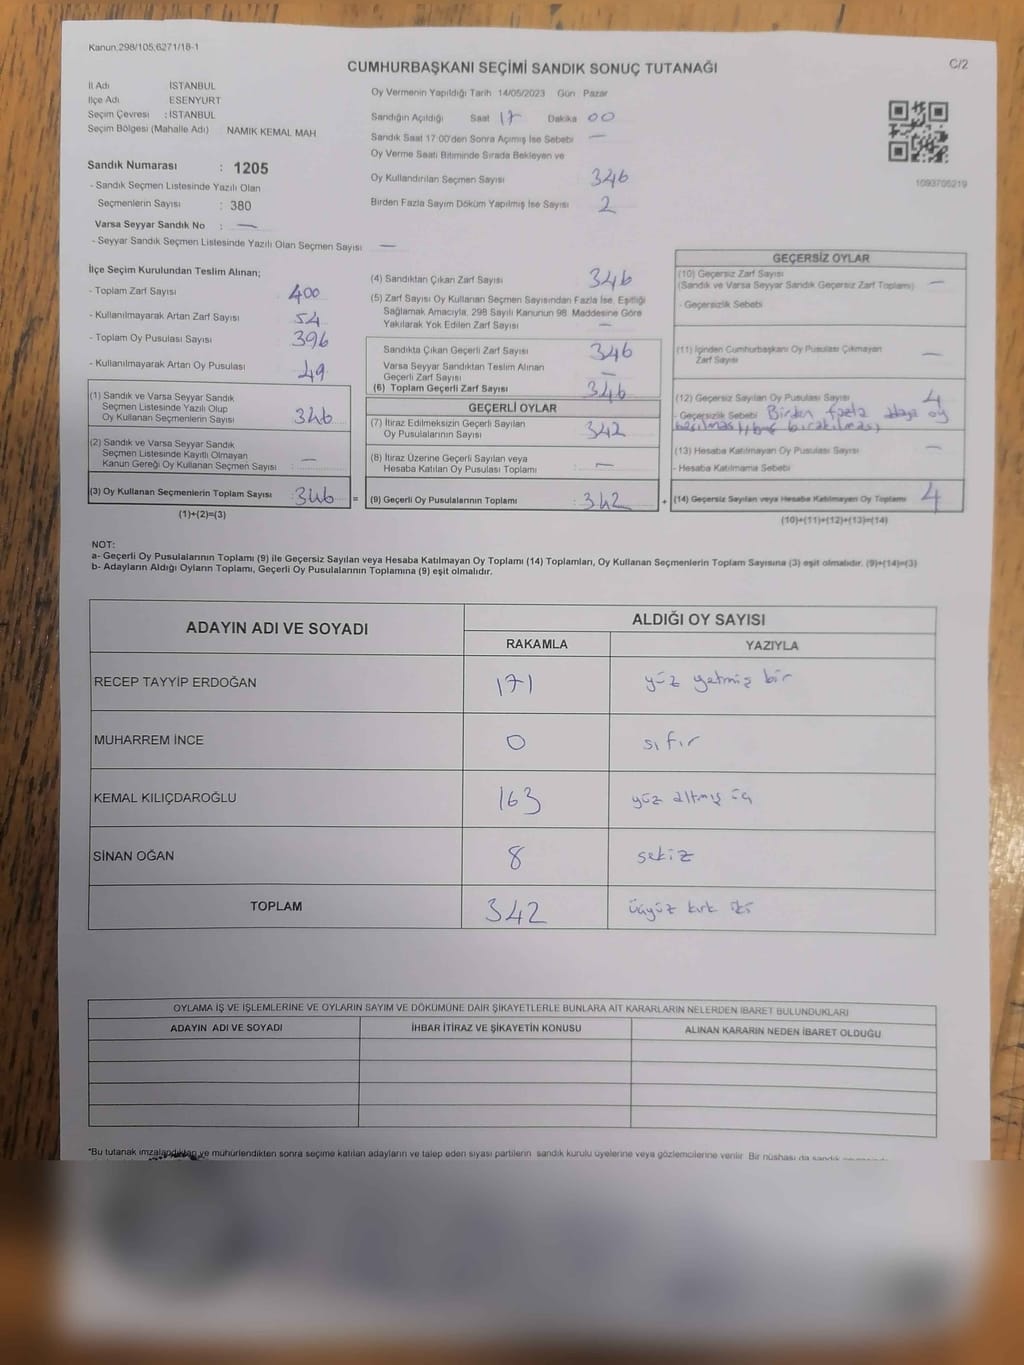 Kanun.298/105,6271/18-1
C/2
CUMHURBAŞKANI SEÇİMİ SANDIK SONUÇ TUTANAĞI
İl Adı İSTANBUL
İlçe Adı ESENYURT
Seçim Çevresi : İSTANBUL
Seçim Bölgesi (Mahalle Adı) NAMIK KEMAL MAH
Sandık Numarası : 1205
- Sandık Seçmen Listesinde Yazılı Olan
Seçmenlerin Sayısı : 380
Varsa Seyyar Sandık No : —
- Seyyar Sandık Seçmen Listesinde Yazılı Olan Seçmen Sayısı —
Oy Vermenin Yapıldığı Tarih 14/05/2023 Gün Pazar
Sandığın Açıldığı Saat 17 Dakika 00
Sandık Saat 17:00'den Sonra Açımış İse Sebebi —
Oy Verme Saati Bitiminde Sırada Bekleyen ve
Oy Kullandırılan Seçmen Sayısı 346
Birden Fazla Sayım Döküm Yapılmış İse Sayısı 2
1093706219
İlçe Seçim Kurulundan Teslim Alınan;
- Toplam Zarf Sayısı 400
- Kullanılmayarak Artan Zarf Sayısı 54
- Toplam Oy Pusulası Sayısı 396
- Kullanılmayarak Artan Oy Pusulası 49
(1) Sandık ve Varsa Seyyar Sandık
Seçmen Listesinde Yazılı Olup
Oy Kullanan Seçmenlerin Sayısı 346
(2) Sandık ve Varsa Seyyar Sandık
Seçmen Listesinde Kayıtlı Olmayan
Kanun Gereği Oy Kullanan Seçmen Sayısı : —
(3) Oy Kullanan Seçmenlerin Toplam Sayısı : 346 =
(1)+(2)=(3)
(4) Sandıktan Çıkan Zarf Sayısı 346
(5) Zarf Sayısı Oy Kullanan Seçmen Sayısından Fazla İse, Eşitliği
Sağlamak Amacıyla, 298 Sayılı Kanunun 98. Maddesine Göre
Yakılarak Yok Edilen Zarf Sayısı —
Sandıkta Çıkan Geçerli Zarf Sayısı 346
Varsa Seyyar Sandıktan Teslim Alınan
Geçerli Zarf Sayısı —
(6) Toplam Geçerli Zarf Sayısı 346
GEÇERLİ OYLAR
(7) İtiraz Edilmeksizin Geçerli Sayılan
Oy Pusulalarının Sayısı 342
(8) İtiraz Üzerine Geçerli Sayılan veya
Hesaba Katılan Oy Pusulası Toplamı : —
(9) Geçerli Oy Pusulalarının Toplamı : 342 +
GEÇERSİZ OYLAR
(10) Geçersiz Zarf Sayısı
(Sandık ve Varsa Seyyar Sandık Geçersiz Zarf Toplamı) —
- Geçersizlik Sebebi
(11) İçinden Cumhurbaşkanı Oy Pusulası Çıkmayan
Zarf Sayısı —
(12) Geçersiz Sayılan Oy Pusulası Sayısı 4
- Geçersizlik Sebebi Birden fazla adaya oy
bırakılması
(13) Hesaba Katılmayan Oy Pusulası Sayısı —
- Hesaba Katılmama Sebebi
(14) Geçersiz Sayılan veya Hesaba Katılmayan Oy Toplamı 4
(10)+(11)+(12)+(13)=(14)
NOT:
a- Geçerli Oy Pusulalarının Toplamı (9) ile Geçersiz Sayılan veya Hesaba Katılmayan Oy Toplamı (14) Toplamları, Oy Kullanan Seçmenlerin Toplam Sayısına (3) eşit olmalıdır. (9)+(14)=(3)
b- Adayların Aldığı Oyların Toplamı, Geçerli Oy Pusulalarının Toplamına (9) eşit olmalıdır.
ADAYIN ADI VE SOYADI ALDIĞI OY SAYISI
RAKAMLA YAZIYLA
RECEP TAYYİP ERDOĞAN 171 yüz yetmiş bir
MUHARREM İNCE 0 sıfır
KEMAL KILIÇDAROĞLU 163 yüz altmış üç
SİNAN OĞAN 8 sekiz
TOPLAM 342 üçyüz kırk iki
OYLAMA İŞ VE İŞLEMLERİNE VE OYLARIN SAYIM VE DÖKÜMÜNE DAİR ŞİKAYETLERLE BUNLARA AİT KARARLARIN NELERDEN İBARET BULUNDUKLARI
ADAYIN ADI VE SOYADI İHBAR İTİRAZ VE ŞİKAYETİN KONUSU ALINAN KARARIN NEDEN İBARET OLDUĞU
*Bu tutanak imzalandıktan ve mühürlendikten sonra seçime katılan adayların ve talep eden siyasi partilerin sandık kurulu üyelerine veya gözlemcilerine verilir Bir nüshası da sandık